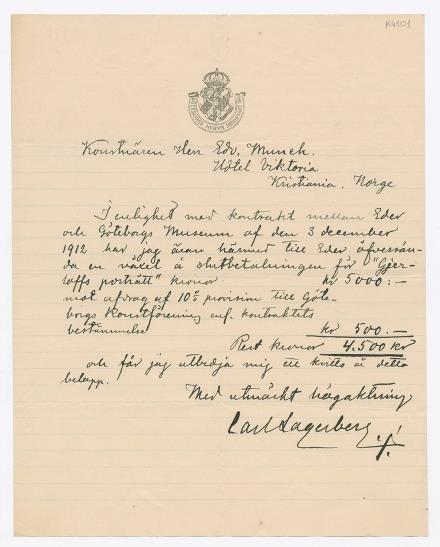 K4101
Konstnären Herr Edv. Munch.
Hôtel Viktoria
Kristiania. Norge
I enlighet med kontraktet mellan Eder
och Göteborgs Museum af den 3 december
1912 har jag äran härmed till Eder öfversän-
da en växel å slutbetalningen för "Gjer-
loffs porträtt" kronor kr 5000:-
mot afdrag af 10% provision till Göte-
borgs Konstförening enl. kontraktets
bestämmelse kr 500.-
Rest kronor 4.500 kr
och får jag utbedja mig ett kvitto å detta
belopp.
Med utmärkt högaktning
Carl Lagerberg